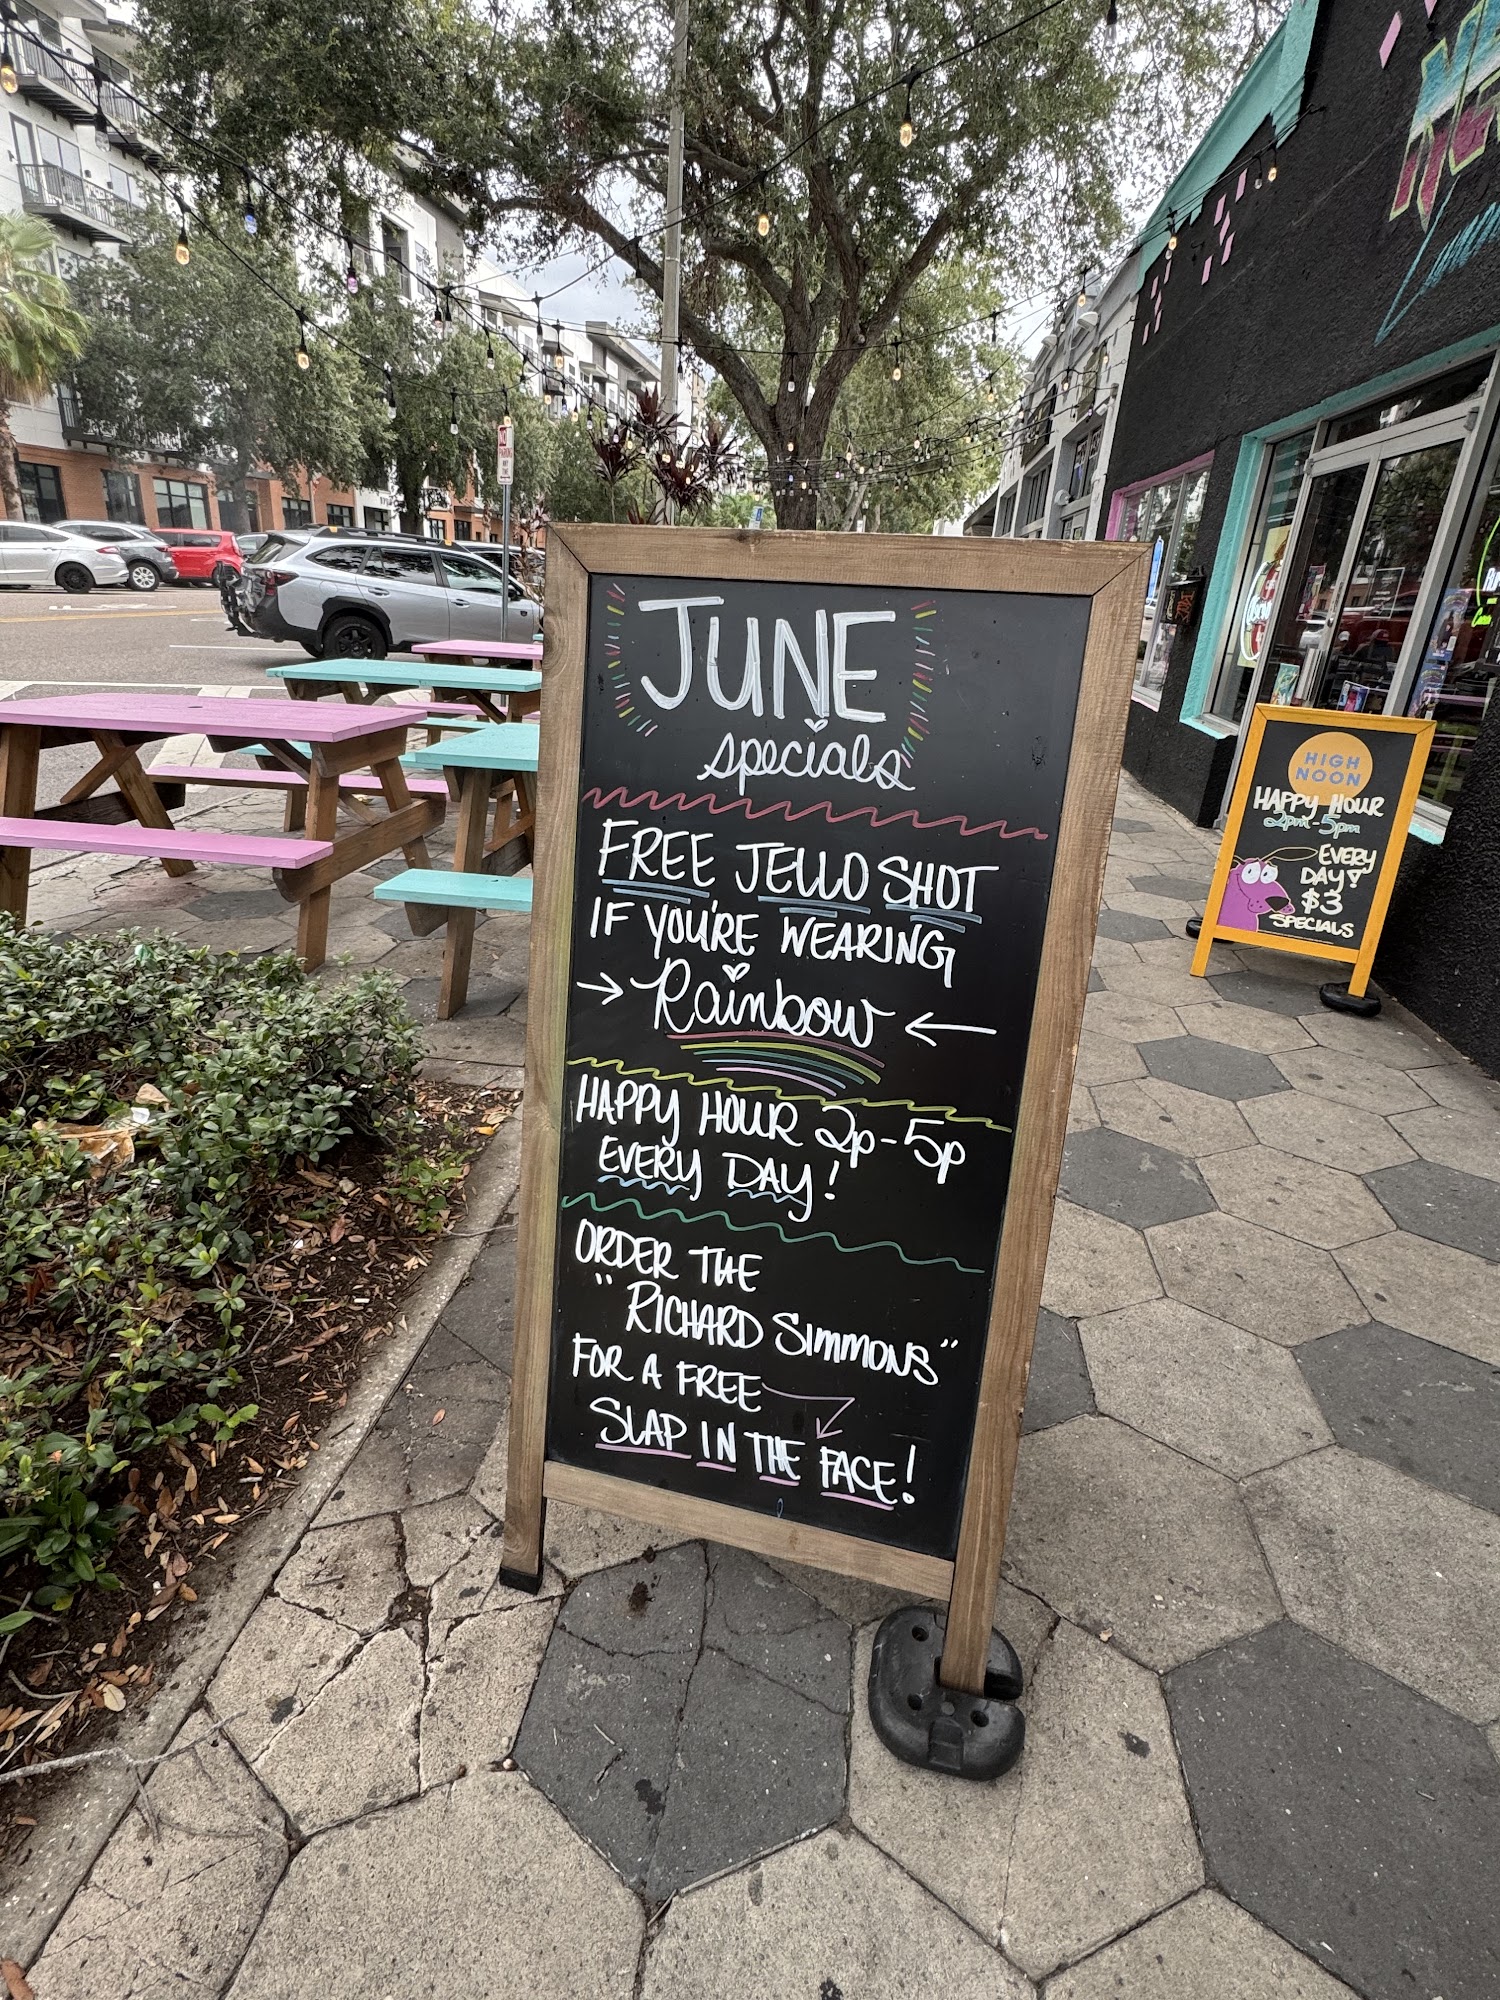 JUNE
specials
FREE JELLO SHOT
IF YOU'RE WEARING
→ Rainbow ←
HAPPY HOUR 2p-5p
EVERY DAY!
ORDER THE
"RICHARD SIMMONS"
FOR A FREE
SLAP IN THE FACE!
HIGH
NOON
HAPPY HOUR
2pm-5pm
EVERY
DAY!
$3
SPECIALS
NO
PARKING